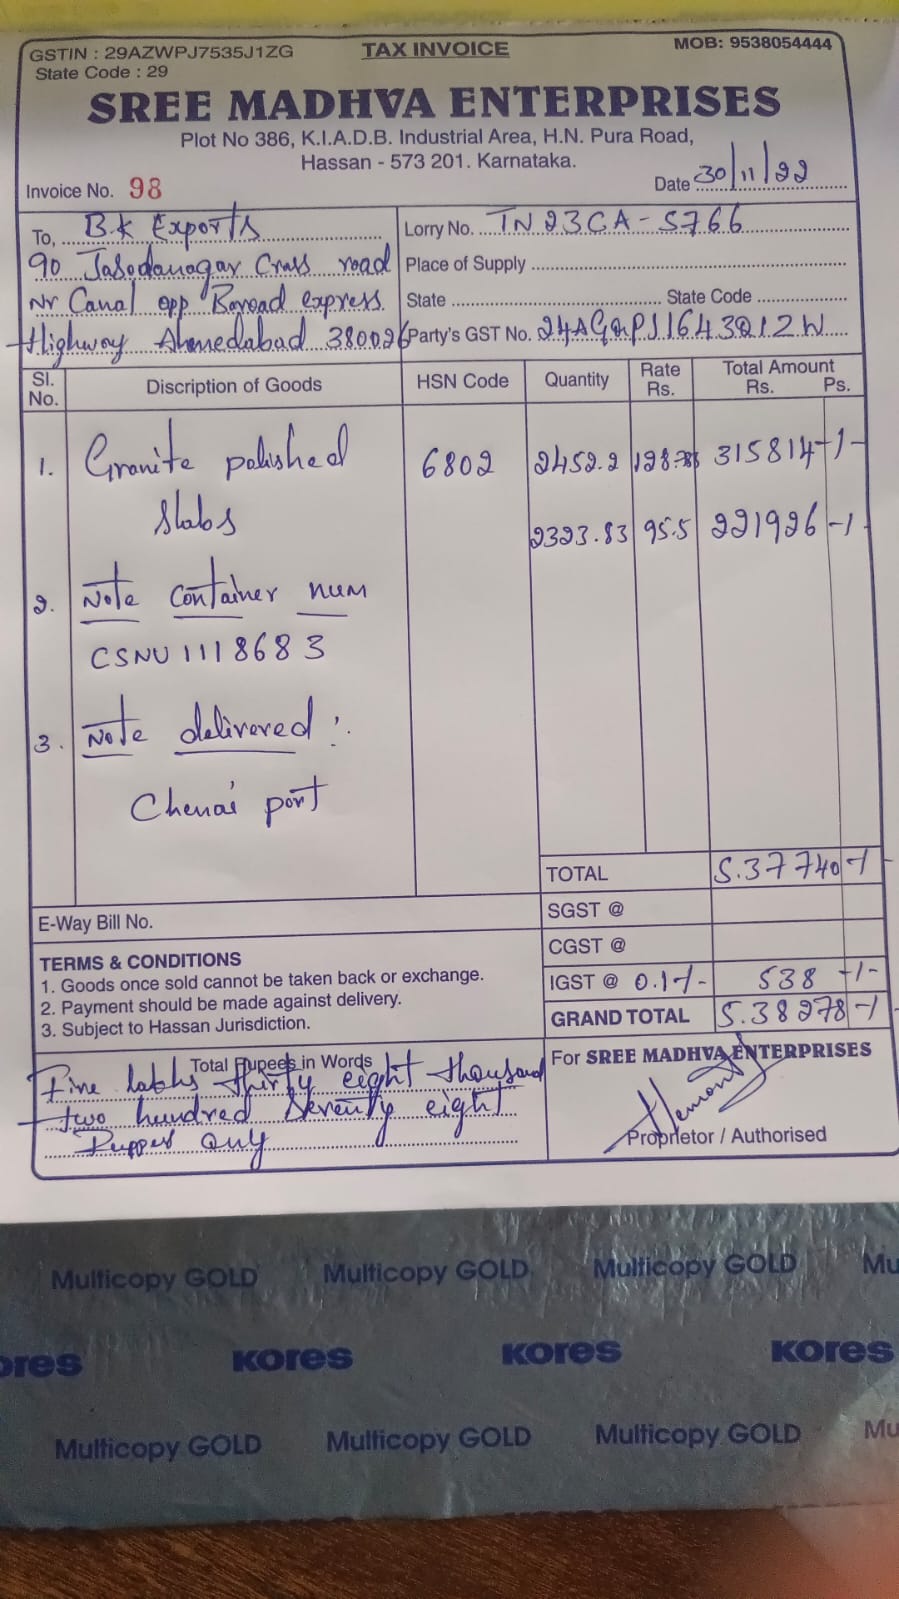 GSTIN : 29AZWPJ7535J1ZG TAX INVOICE MOB: 9538054444
State Code : 29
SREE MADHVA ENTERPRISES
Plot No 386, K.I.A.D.B. Industrial Area, H.N. Pura Road,
Hassan - 573 201. Karnataka.
Invoice No. 98 Date 30/11/22
To, B.K Exports
90 Jasodanagar Cross road
Nr Canal opp Baroad express
Highway Ahmedabad 380026
Lorry No. TN23CA-5766
Place of Supply
State State Code
Party's GST No.
Sl. No. Discription of Goods HSN Code Quantity Rate Rs. Total Amount Rs. Ps.
1. Granite polished 6802 2452.2 315814-/-
Slabs 2323.83 95.5 221926-/-
2. Note container num
CSNU 1118683
3. Note delivered :
Chenai port
TOTAL 5.37740-/-
E-Way Bill No.
SGST @
CGST @
IGST @ 0.1-/- 538-/-
GRAND TOTAL 5.38278-/-
TERMS & CONDITIONS
1. Goods once sold cannot be taken back or exchange.
2. Payment should be made against delivery.
3. Subject to Hassan Jurisdiction.
Total Rupees in Words
Five lakhs thirty eight thousand
two hundred seventy eight
Ruppes only
For SREE MADHVA ENTERPRISES
Proprietor / Authorised
Multicopy GOLD Multicopy GOLD Multicopy GOLD Mu
ores KORES KORES KORES
Multicopy GOLD Multicopy GOLD Multicopy GOLD Mu